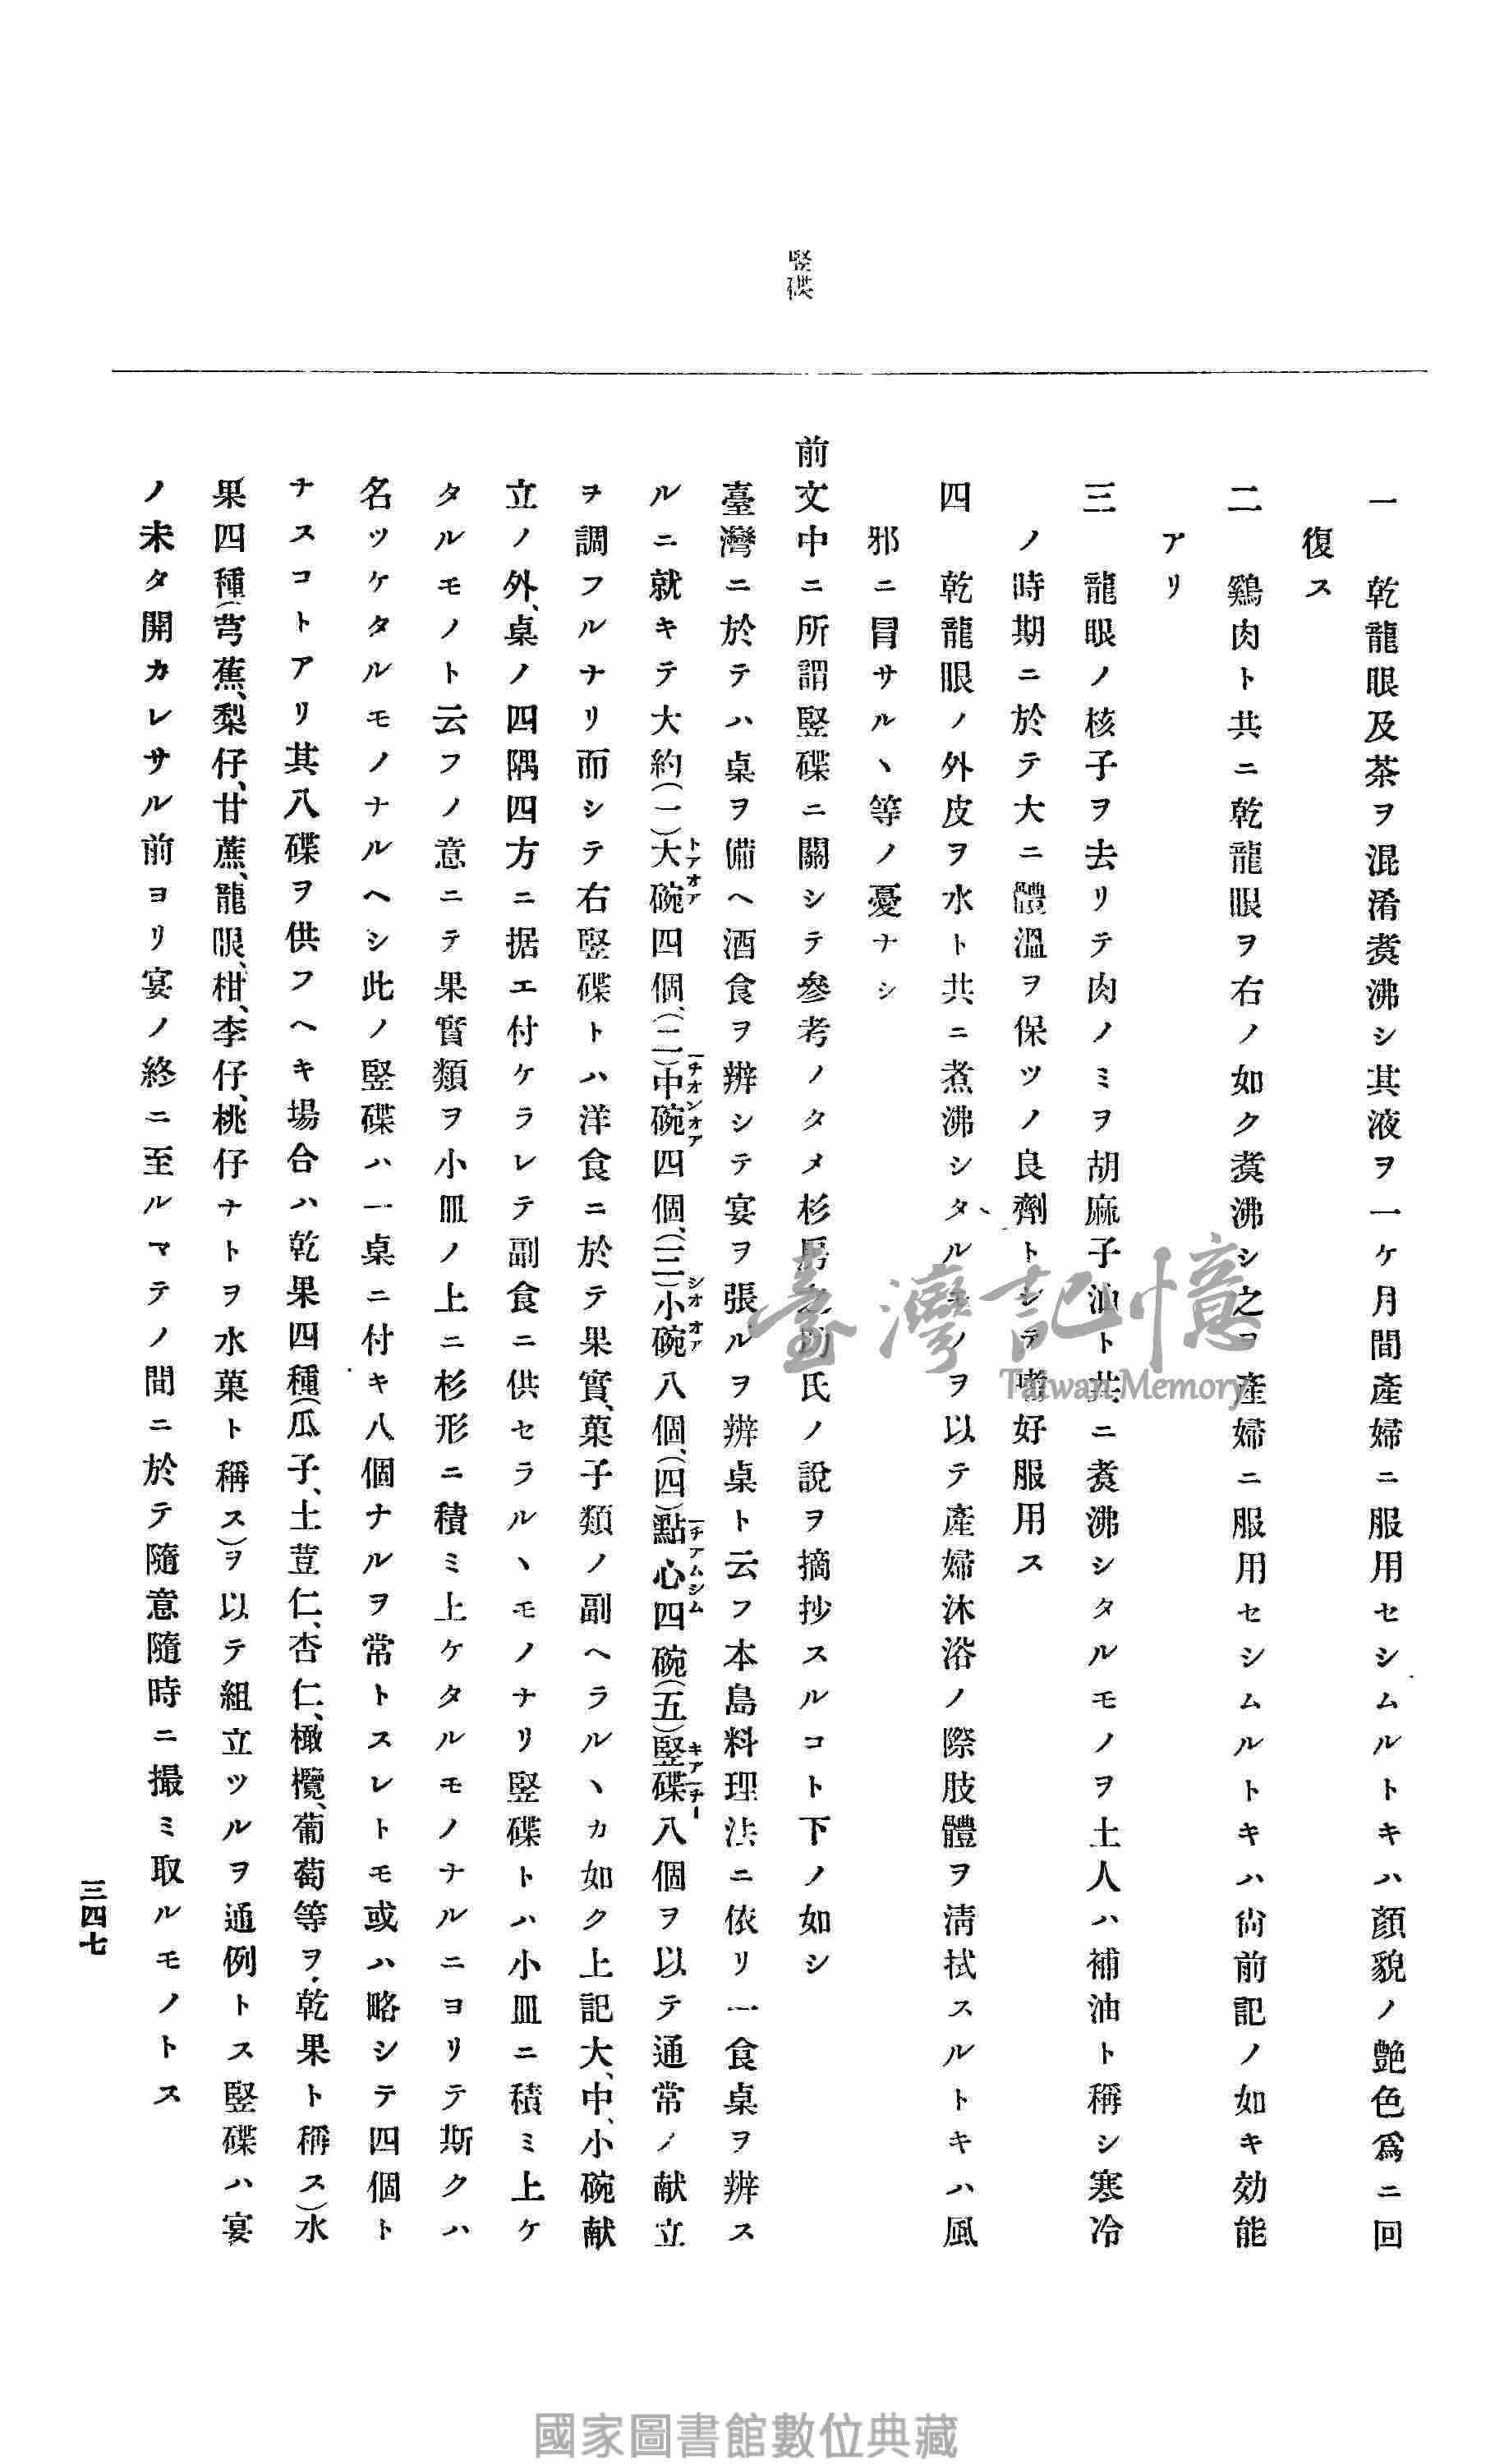 竪碟
一 乾龍眼及茶ヲ混淆煑沸シ其液ヲ一ケ月間產婦ニ服用セシムルトキハ顏貌ノ艶色爲ニ回
復ス
二 鷄肉ト共ニ乾龍眼ヲ右ノ如ク煑沸シ之ヲ產婦ニ服用セシムルトキハ尙前記ノ如キ効能
アリ
三 龍眼ノ核子ヲ去リテ肉ノミヲ胡麻子油ト共ニ煑沸シタルモノヲ土人ハ補油ト稱シ寒冷
ノ時期ニ於テ大ニ體溫ヲ保ツノ良劑トシテ嗜好服用ス
四 乾龍眼ノ外皮ヲ水ト共ニ煮沸シタルモノヲ以テ產婦沐浴ノ際肢體ヲ淸拭スルトキハ風
邪ニ冒サルヽ等ノ憂ナシ
前文中ニ所謂竪碟ニ關シテ參考ノタメ杉房之助氏ノ說ヲ摘抄スルコト下ノ如シ
臺灣ニ於テハ桌ヲ備ヘ酒食ヲ辨シテ宴ヲ張ルヲ辨桌ト云フ本島料理法ニ依リ一食桌ヲ辨ス
ルニ就キテ大約(一)大碗四個、(二)中碗四個、(三)小碗八個、(四)點心四碗(五)竪碟八個ヲ以テ通常ノ献立
トアオア 一チオンオア シオオア 一チアムシム キア一チー
ヲ調フルナリ而シテ右竪碟トハ洋食ニ於テ果實、菓子類ノ副ヘラルヽカ如ク上記大、中、小碗献
立ノ外、桌ノ四隅四方ニ据エ付ケラレテ副食ニ供セラルヽモノナリ竪碟トハ小皿ニ積ミ上ケ
タルモノト云フノ意ニテ果實類ヲ小皿ノ上ニ杉形ニ積ミ上ケタルモノナルニヨリテ斯クハ
名ツケタルモノナルヘシ此ノ竪碟ハ一桌ニ付キ八個ナルヲ常トスレトモ或ハ略シテ四個ト
ナスコトアリ其八碟ヲ供フヘキ場合ハ乾果四種(瓜子、土荳仁、杏仁、橄欖、葡萄等ヲ乾果ト稱ス)水
果四種(芎蕉、梨仔、甘蔗、龍眼、柑、李仔、桃仔ナトヲ水菓ト稱ス)ヲ以テ組立ツルヲ通例トス竪碟ハ宴
ノ未タ開カレサル前ヨリ宴ノ終ニ至ルマテノ間ニ於テ隨意隨時ニ撮ミ取ルモノトス
三四七
臺灣記憶
Taiwan Memory
國家圖書館數位典藏